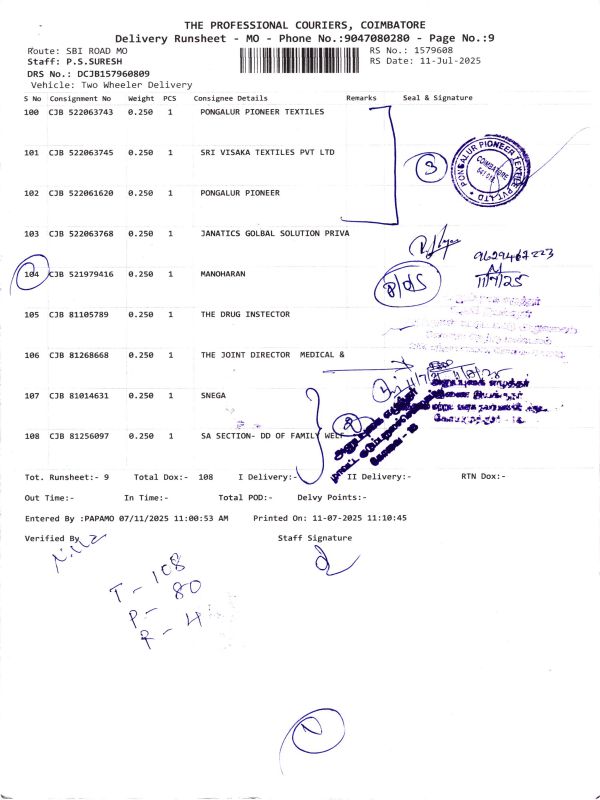 THE PROFESSIONAL COURIERS, COIMBATORE
Delivery Runsheet - MO - Phone No.:9047080280 - Page No.:9
Route: SBI ROAD MO
RS No.: 1579608
Staff: P.S.SURESH
RS Date: 11-Jul-2025
DRS No.: DCJB157960809
Vehicle: Two Wheeler Delivery
S No Consignment No Weight PCS Consignee Details Remarks Seal & Signature
100 CJB 522063743 0.250 1 PONGALUR PIONEER TEXTILES
101 CJB 522063745 0.250 1 SRI VISAKA TEXTILES PVT LTD
3
PONGALUR PIONEER TEXTILES PVT.LTD
COIMBATORE
102 CJB 522061620 0.250 1 PONGALUR PIONEER
103 CJB 522063768 0.250 1 JANATICS GOLBAL SOLUTION PRIVA
9629467223
11/7/25
104 CJB 521979416 0.250 1 MANOHARAN
105 CJB 81105789 0.250 1 THE DRUG INSTECTOR
106 CJB 81268668 0.250 1 THE JOINT DIRECTOR MEDICAL &
107 CJB 81014631 0.250 1 SNEGA
2
108 CJB 81256097 0.250 1 SA SECTION- DD OF FAMILY WELF
Tot. Runsheet:- 9 Total Dox:- 108 I Delivery:- II Delivery:- RTN Dox:-
Out Time:- In Time:- Total POD:- Delvy Points:-
Entered By :PAPAMO 07/11/2025 11:00:53 AM Printed On: 11-07-2025 11:10:45
Verified By
Staff Signature
T - 108
P - 80